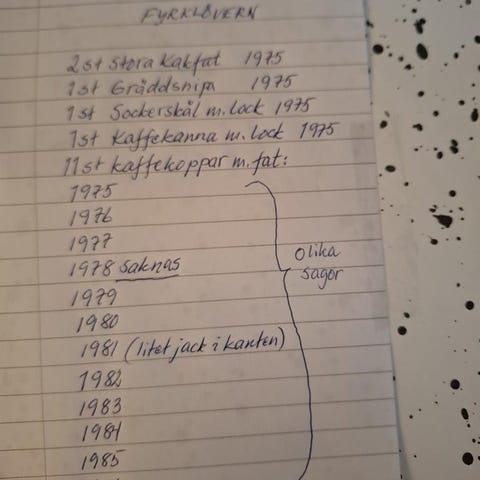 FYRKLÖVERN
2st stora kakfat 1975
1st Gräddsnipa 1975
1st Sockerskål m. lock 1975
1st Kaffekanna m. lock 1975
11st kaffekoppar m. fat:
1975
1976
1977
1978 saknas
1979
1980
1981 (litet jack i kanten)
1982
1983
1984
1985
Olika
sagor